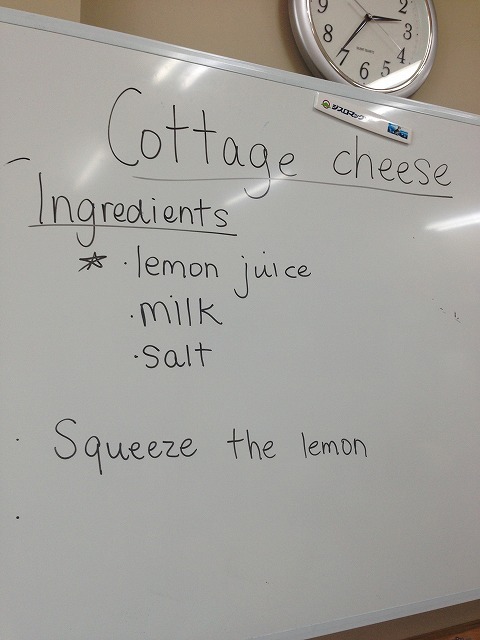 2
3
4
5
6
7
8
9
Cottage cheese
Ingredients
☆ ・lemon juice
・milk
・salt
Squeeze the lemon